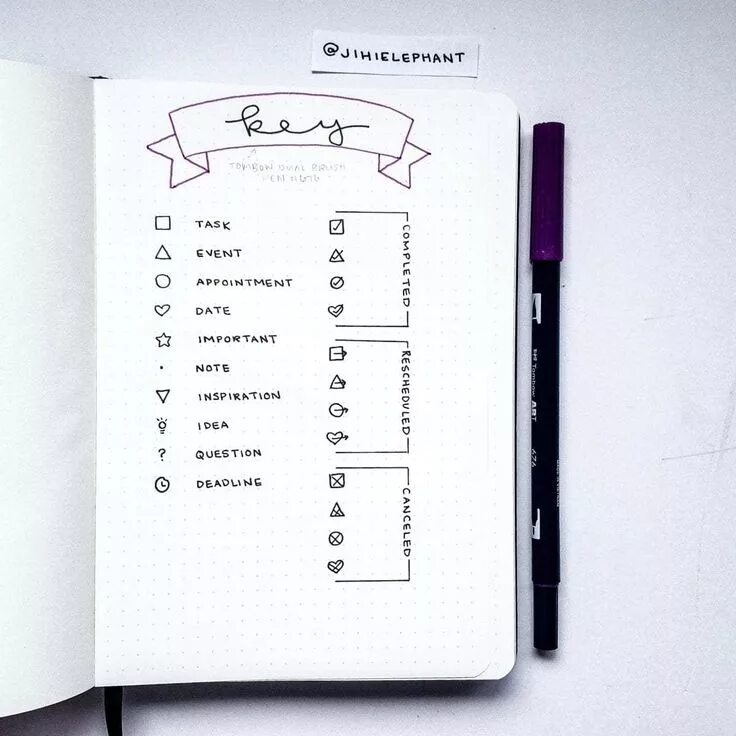 @JIHIELEPHANT
key
TOMBOW DUAL BRUSH
PEN #676
TASK
EVENT
APPOINTMENT
DATE
IMPORTANT
NOTE
INSPIRATION
? IDEA
QUESTION
DEADLINE
COMPLETED
RESCHEDULED
CANCELED
Tombow ART
676